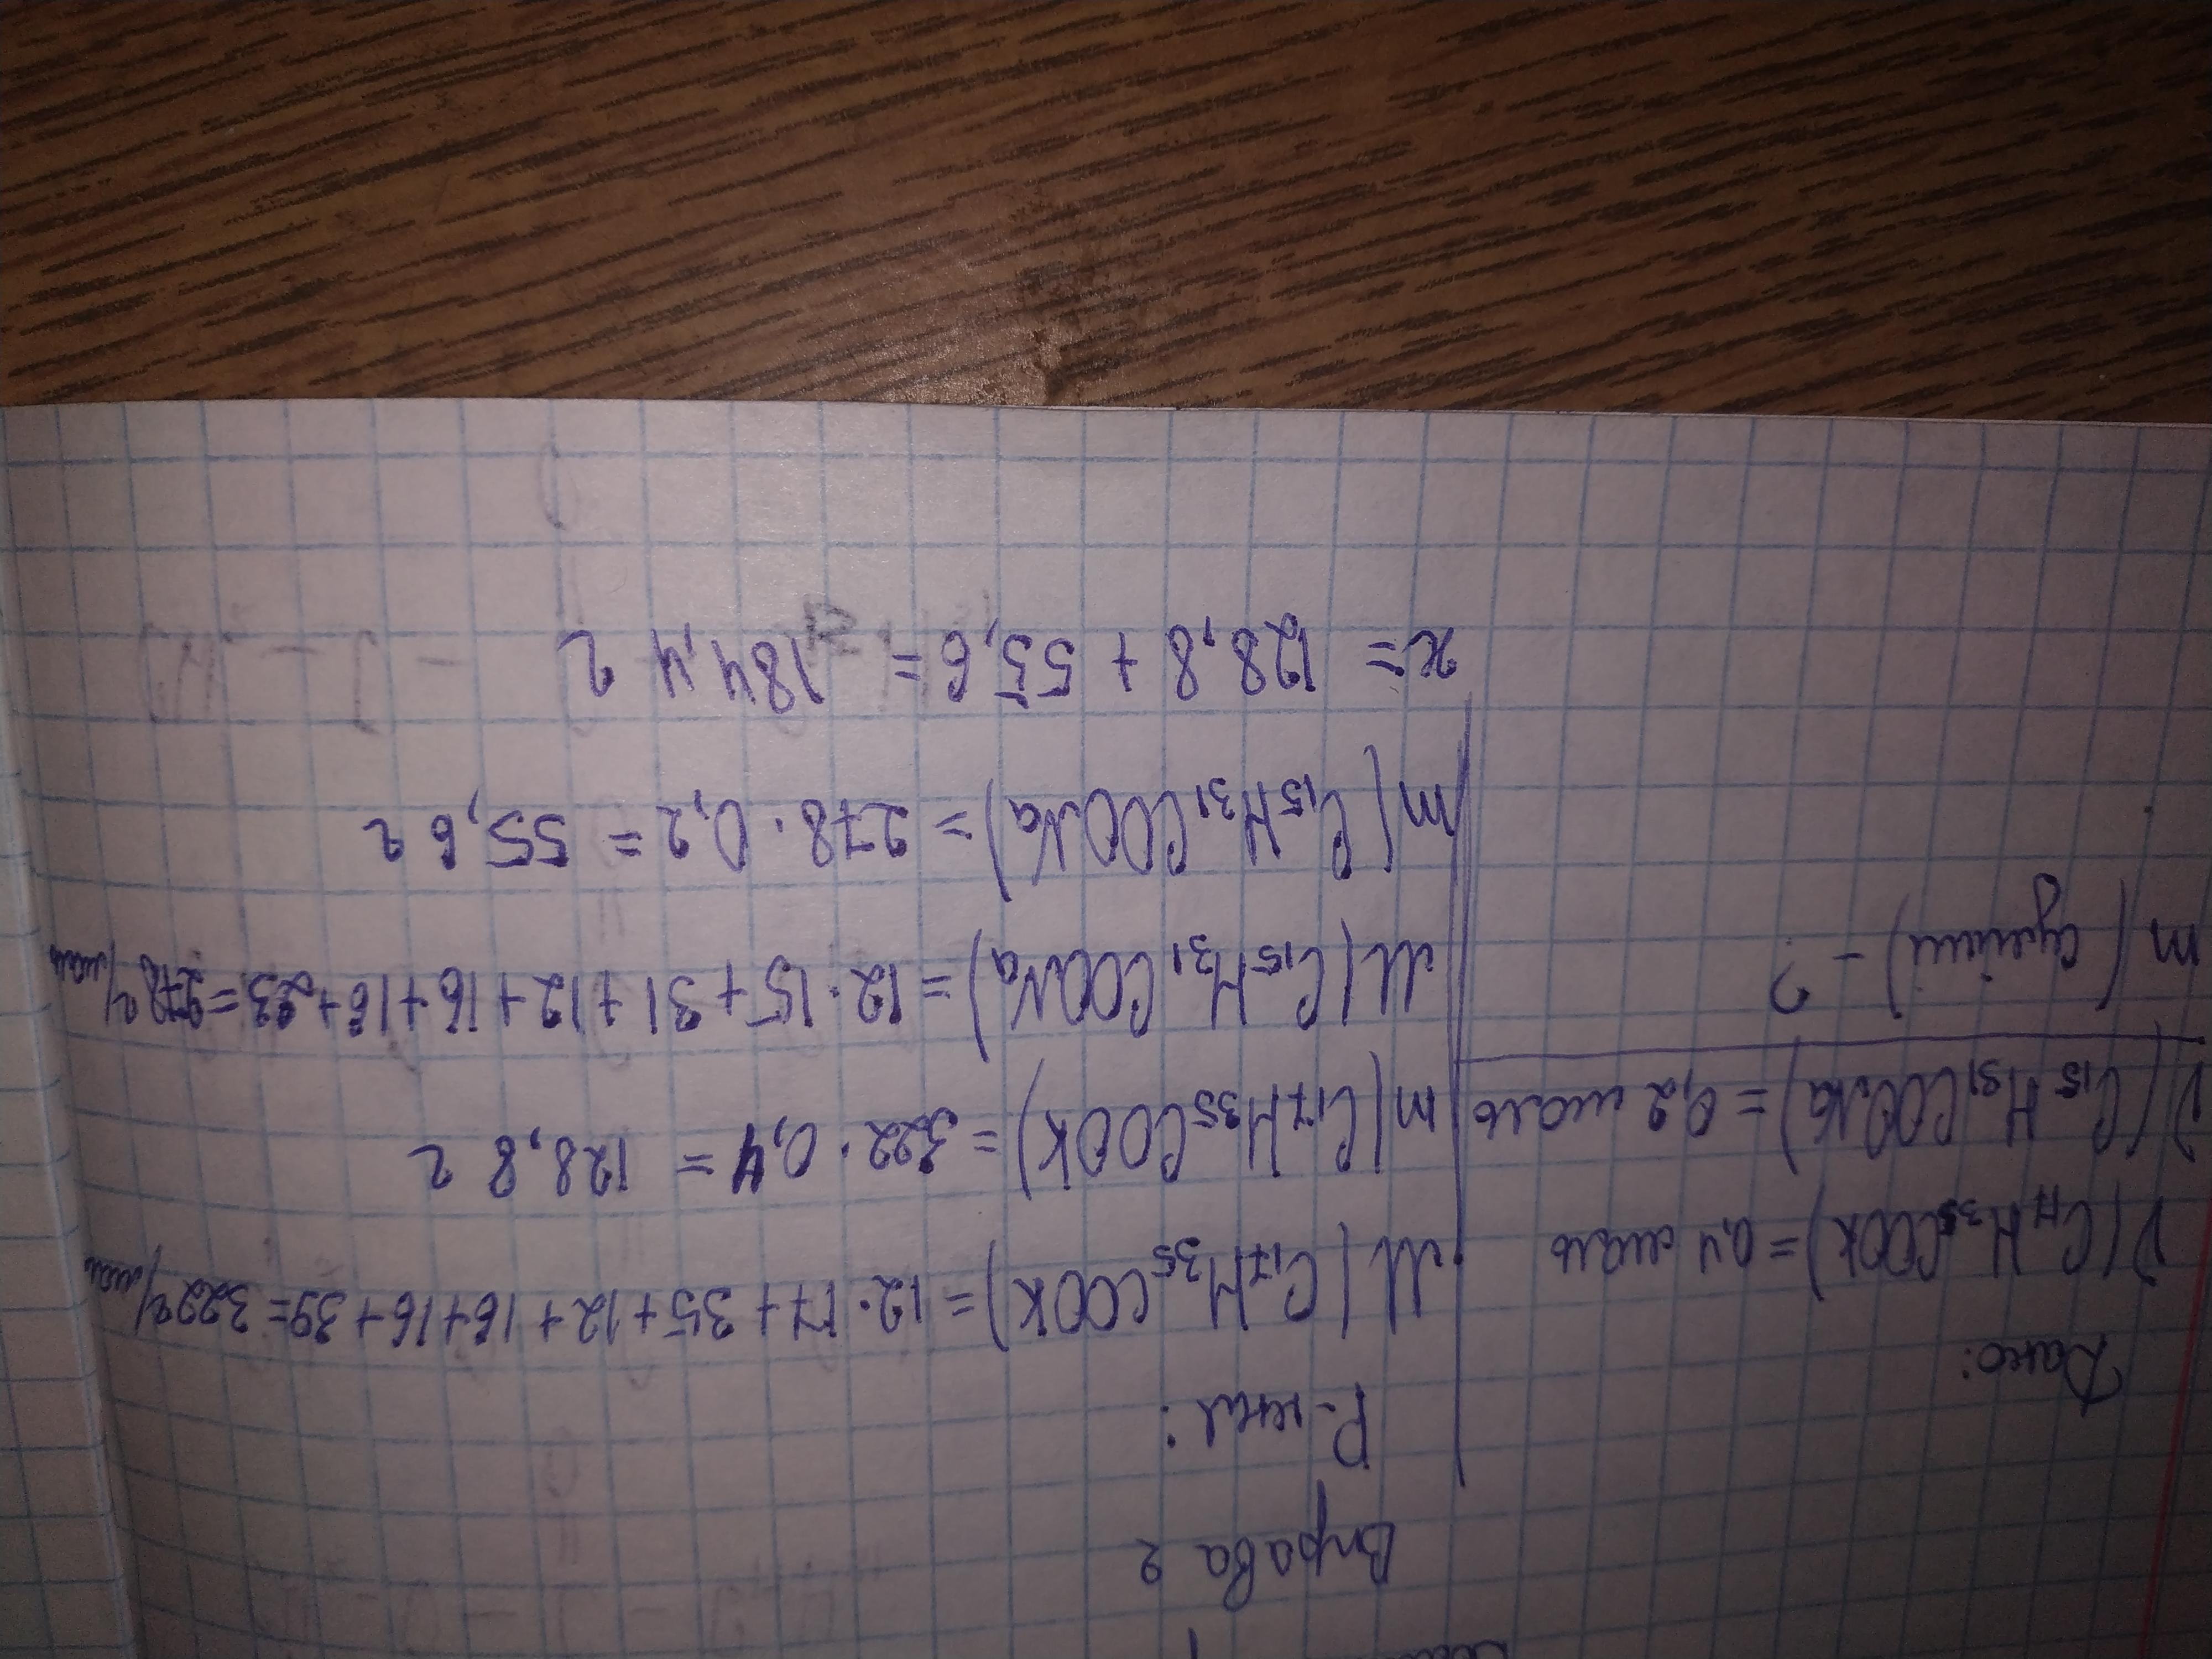 Вправа 2
Дано:
ν(C₁₇H₃₅COOK) = 0,4 моль
ν(C₁₅H₃₁COONa) = 0,2 моль
m(суміші) - ?
Р-ння:
M(C₁₇H₃₅COOK) = 12·17+35+12+16+16+39=322 г/моль
m(C₁₇H₃₅COOK) = 322·0,4 = 128,8 г
M(C₁₅H₃₁COONa) = 12·15+31+12+16+16+23=278 г/моль
m(C₁₅H₃₁COONa) = 278·0,2 = 55,6 г
x = 128,8 + 55,6 = 184,4 г